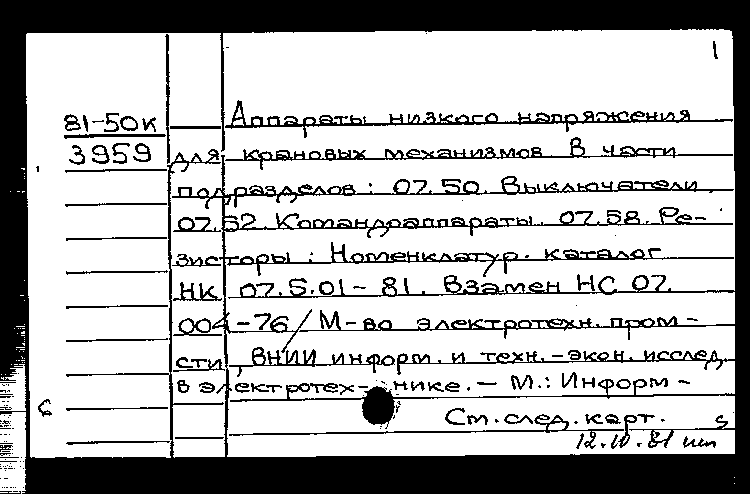 1
81-50к
3959
Аппараты низкого напряжения
для крановых механизмов. В части
подразделов: 07.50. Выключатели.
07.52. Командоаппараты. 07.58. Ре-
зисторы: Номенклатур. каталог
НК 07.5.01-81. Взамен НС 07.
004-76/М-во электротехн. пром-
сти, ВНИИ информ. и техн.-экон. исслед.
в электротех-нике.-М.: Информ-
См. след. карт.
12.IV.81